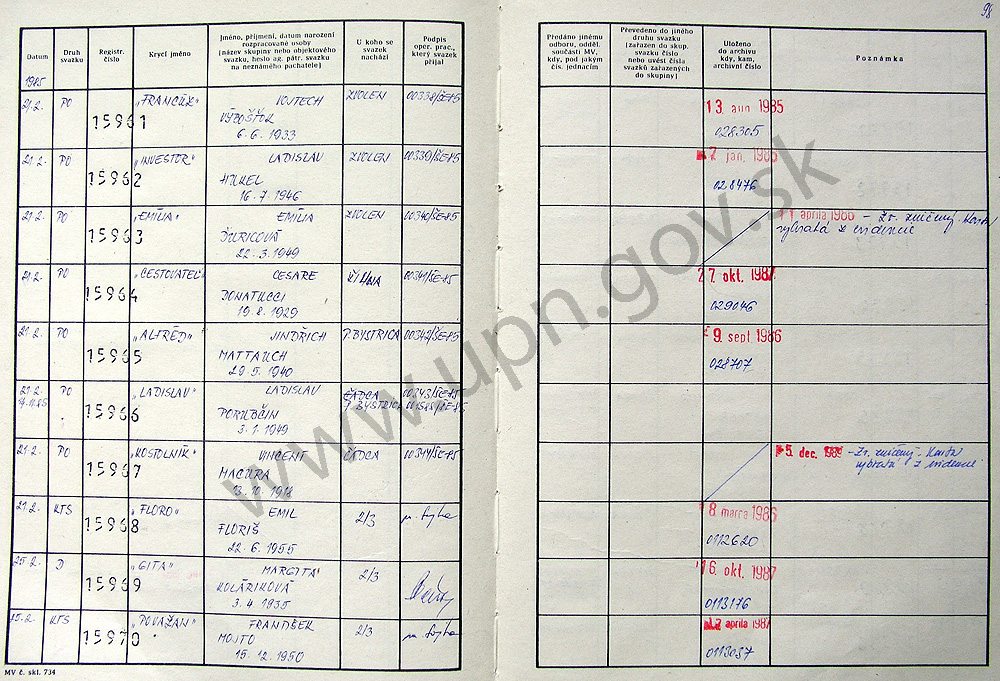 98
Datum
Druh svazku
Registr. číslo
Krycí jméno
Jméno, příjmení, datum narození
rozpracované osoby
(název skupiny nebo objektového
svazku, heslo ag. pátr. svazku
na neznámého pachatele)
U koho se
svazek
nachází
Podpis
oper. prac.,
který svazek
přijal
Předáno jinému
odboru, odděl.
součásti MV,
kdy, pod jakým
čís. jednacím
Převedeno do jiného
druhu svazku
(zařazen do skup.
svazku číslo
nebo uvést čísla
svazků zařazených
do skupiny)
Uloženo
do archivu
kdy, kam,
archivní číslo
Poznámka
1985
21.2. PO 15961 „FRANCÚZ" VOJTECH ZVOLEN 00338/ŠE-85 13. aug 1985
6. 6. 1933 028305
21.2. PO 15962 „INVESTOR" LADISLAV ZVOLEN 00339/ŠE-85 jan. 1986
HUKEL 028476
16. 7. 1946
21.2. PO 15963 „EMÍLIA" EMÍLIA ZVOLEN 00340/ŠE-85 apríla 1986 – Zv. zničený. Karta
ĎURICOVÁ vybratá z evidencie
22. 3. 1949
21.2. PO 15964 „CESTOVATEĽ" CESARE ŽILINA 00341/ŠE-85 27. okt. 1987
DONATUCCI 029046
19. 8. 1929
21.2. PO 15965 „ALFRÉD" JINDŘICH P. BYSTRICA 00342/ŠE-85 9. sept. 1986
MATTAUCH 028707
29. 5. 1940
21.2. PO 15966 „LADISLAV" LADISLAV ČADCA 00343/ŠE-85
P. BYSTRICA
3. 1. 1949
21.2. PO 15967 „KOSTOLNÍK" VINCENT ČADCA 00344/ŠE-85 5. dec. – Zv. zničený. Karta
MACURA vybratá z evidencie
13. 10. 1918
21.2. KTS 15968 „FLORO" EMIL 2/3 8 marca 1986
FLORIŠ 0112620
22. 6. 1955
25.2. D 15969 „GITA" MARGITA 2/3 16. okt. 1987
KOLÁRIKOVÁ 0113176
3. 4. 1935
KTS 15970 „POVAŽAN" FRANTIŠEK 2/3 apríla 1987
MOJTO 0113057
15. 12. 1950
MV č. skl. 734
www.upn.gov.sk